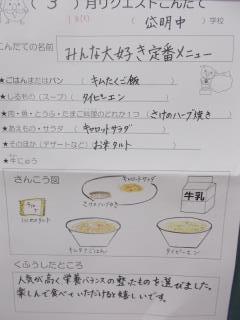 (3)月リクエストこんだて
岱明中 学校
こんだての名前
みんな大好き定番メニュー
★ごはんまたはパン( キムたくご飯 )
★しるもの(スープ)( タイピーエン )
★肉・魚・とうふ・たまご料理のどれか1つ( さけのハーブ焼き )
★あえもの・サラダ( キャロットサラダ )
★そのほか(デザートなど)( お米タルト )
★牛にゅう
さんこう図
キャロットサラダ
さけのハーブやき
牛乳
キムタクごはん
タイピーエン
くふうしたところ
人気が高く栄養バランスの整ったものを選びました。
楽しんで食べていただけると嬉しいです。